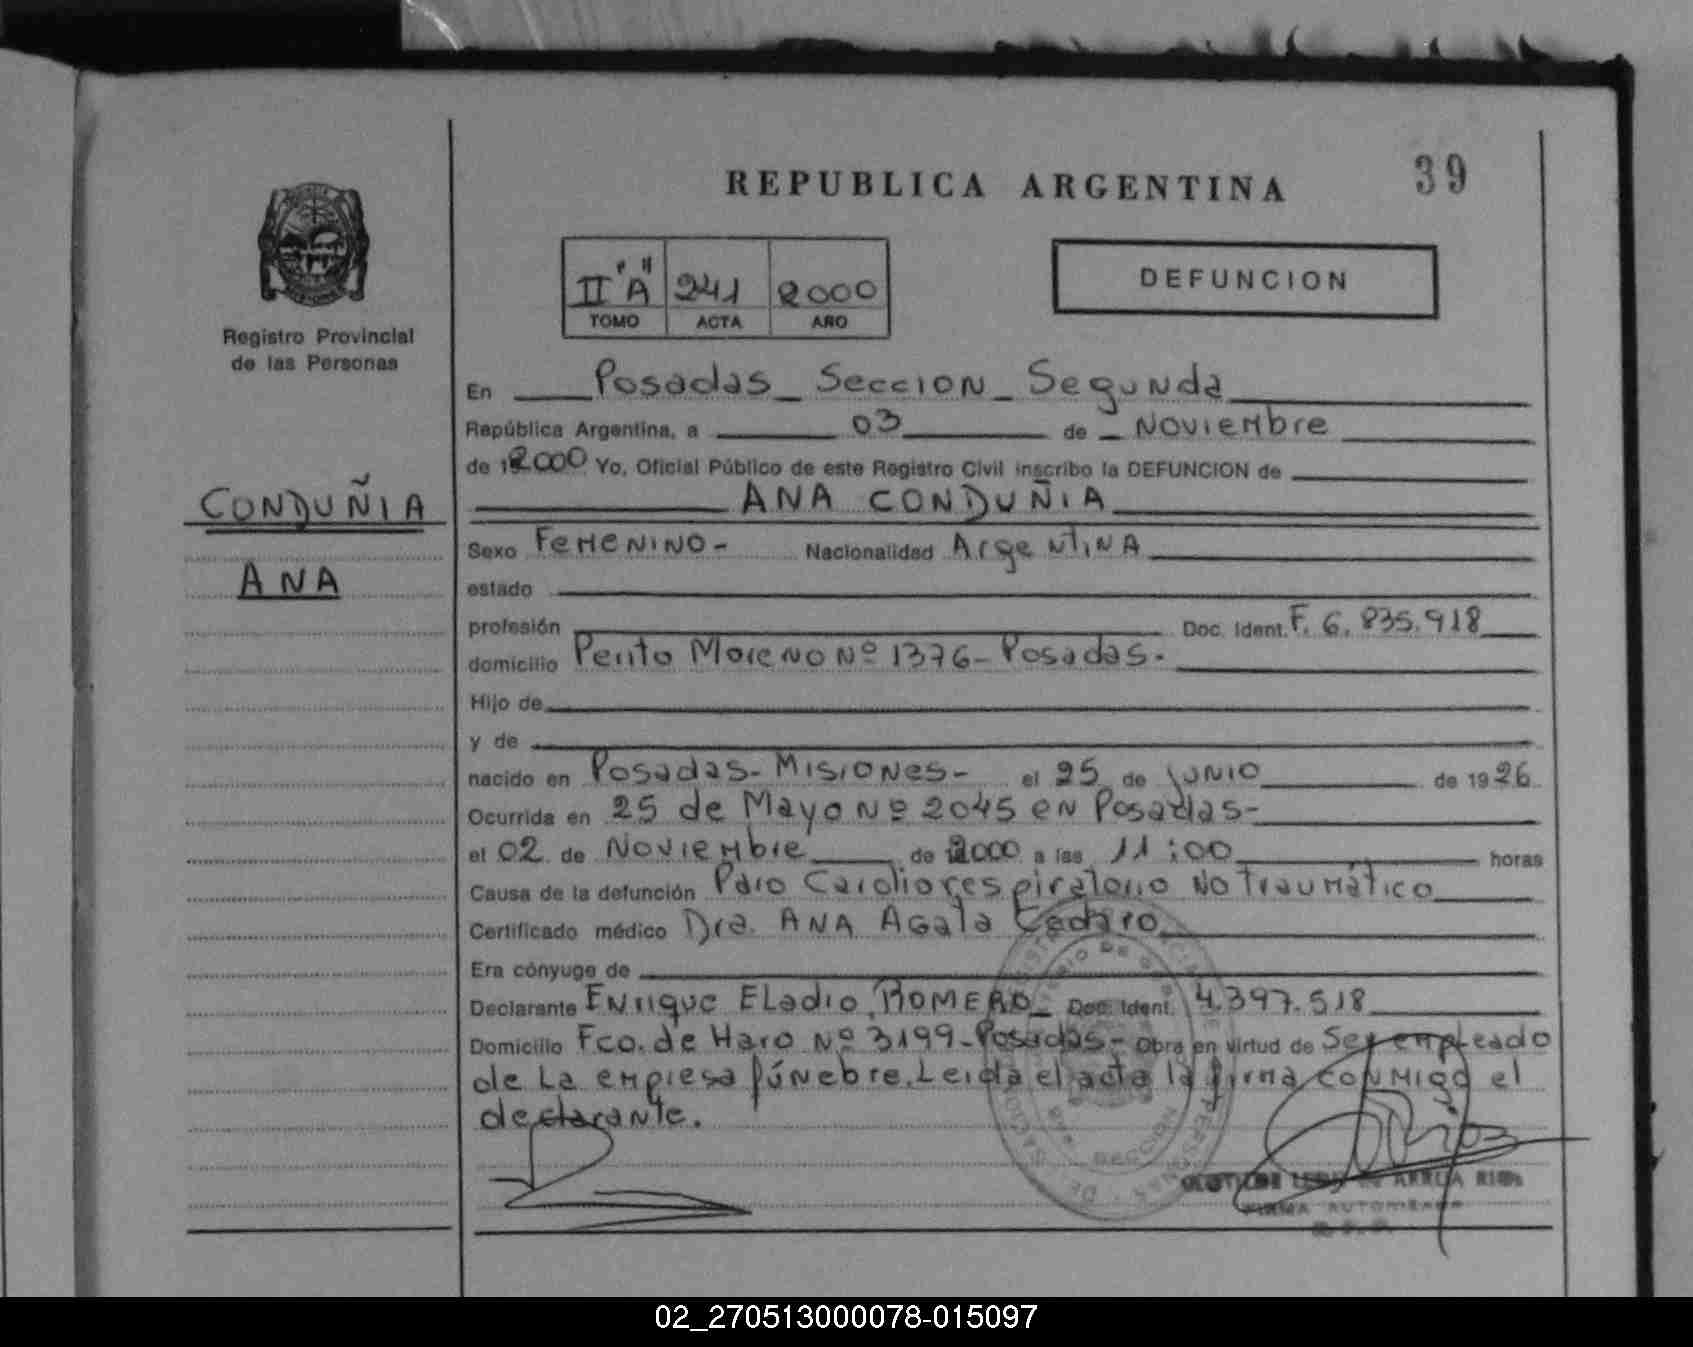 REPUBLICA ARGENTINA
39
II "A" 241 2000
TOMO ACTA AÑO
DEFUNCION
Registro Provincial
de las Personas
CONDUÑIA
ANA
En Posadas Seccion Segunda
República Argentina, a 03 de Noviembre
de 2000 Yo, Oficial Público de este Registro Civil inscribo la DEFUNCION de
ANA CONDUÑIA
Sexo Femenino - Nacionalidad Argentina
estado
profesión Doc. Ident. F. 6.835.918
domicilio Perito Moreno Nº 1376 - Posadas -
Hijo de
y de
nacido en Posadas - Misiones - el 25 de junio de 1926
Ocurrida en 25 de Mayo Nº 2045 en Posadas -
el 02 de Noviembre de 2000 a las 11:00 horas
Causa de la defunción Paro Cardiorespiratorio No traumático
Certificado médico Dra. ANA Agata
Era cónyuge de
Declarante Enrique Eladio ROMERO Doc. Ident. 4.397.518
Domicilio Fco. de Haro Nº 3199 - Posadas - Obra en virtud de Ser empleado
de La empresa fúnebre. Leida el acta la firma conmigo el
declarante.
02_270513000078-015097